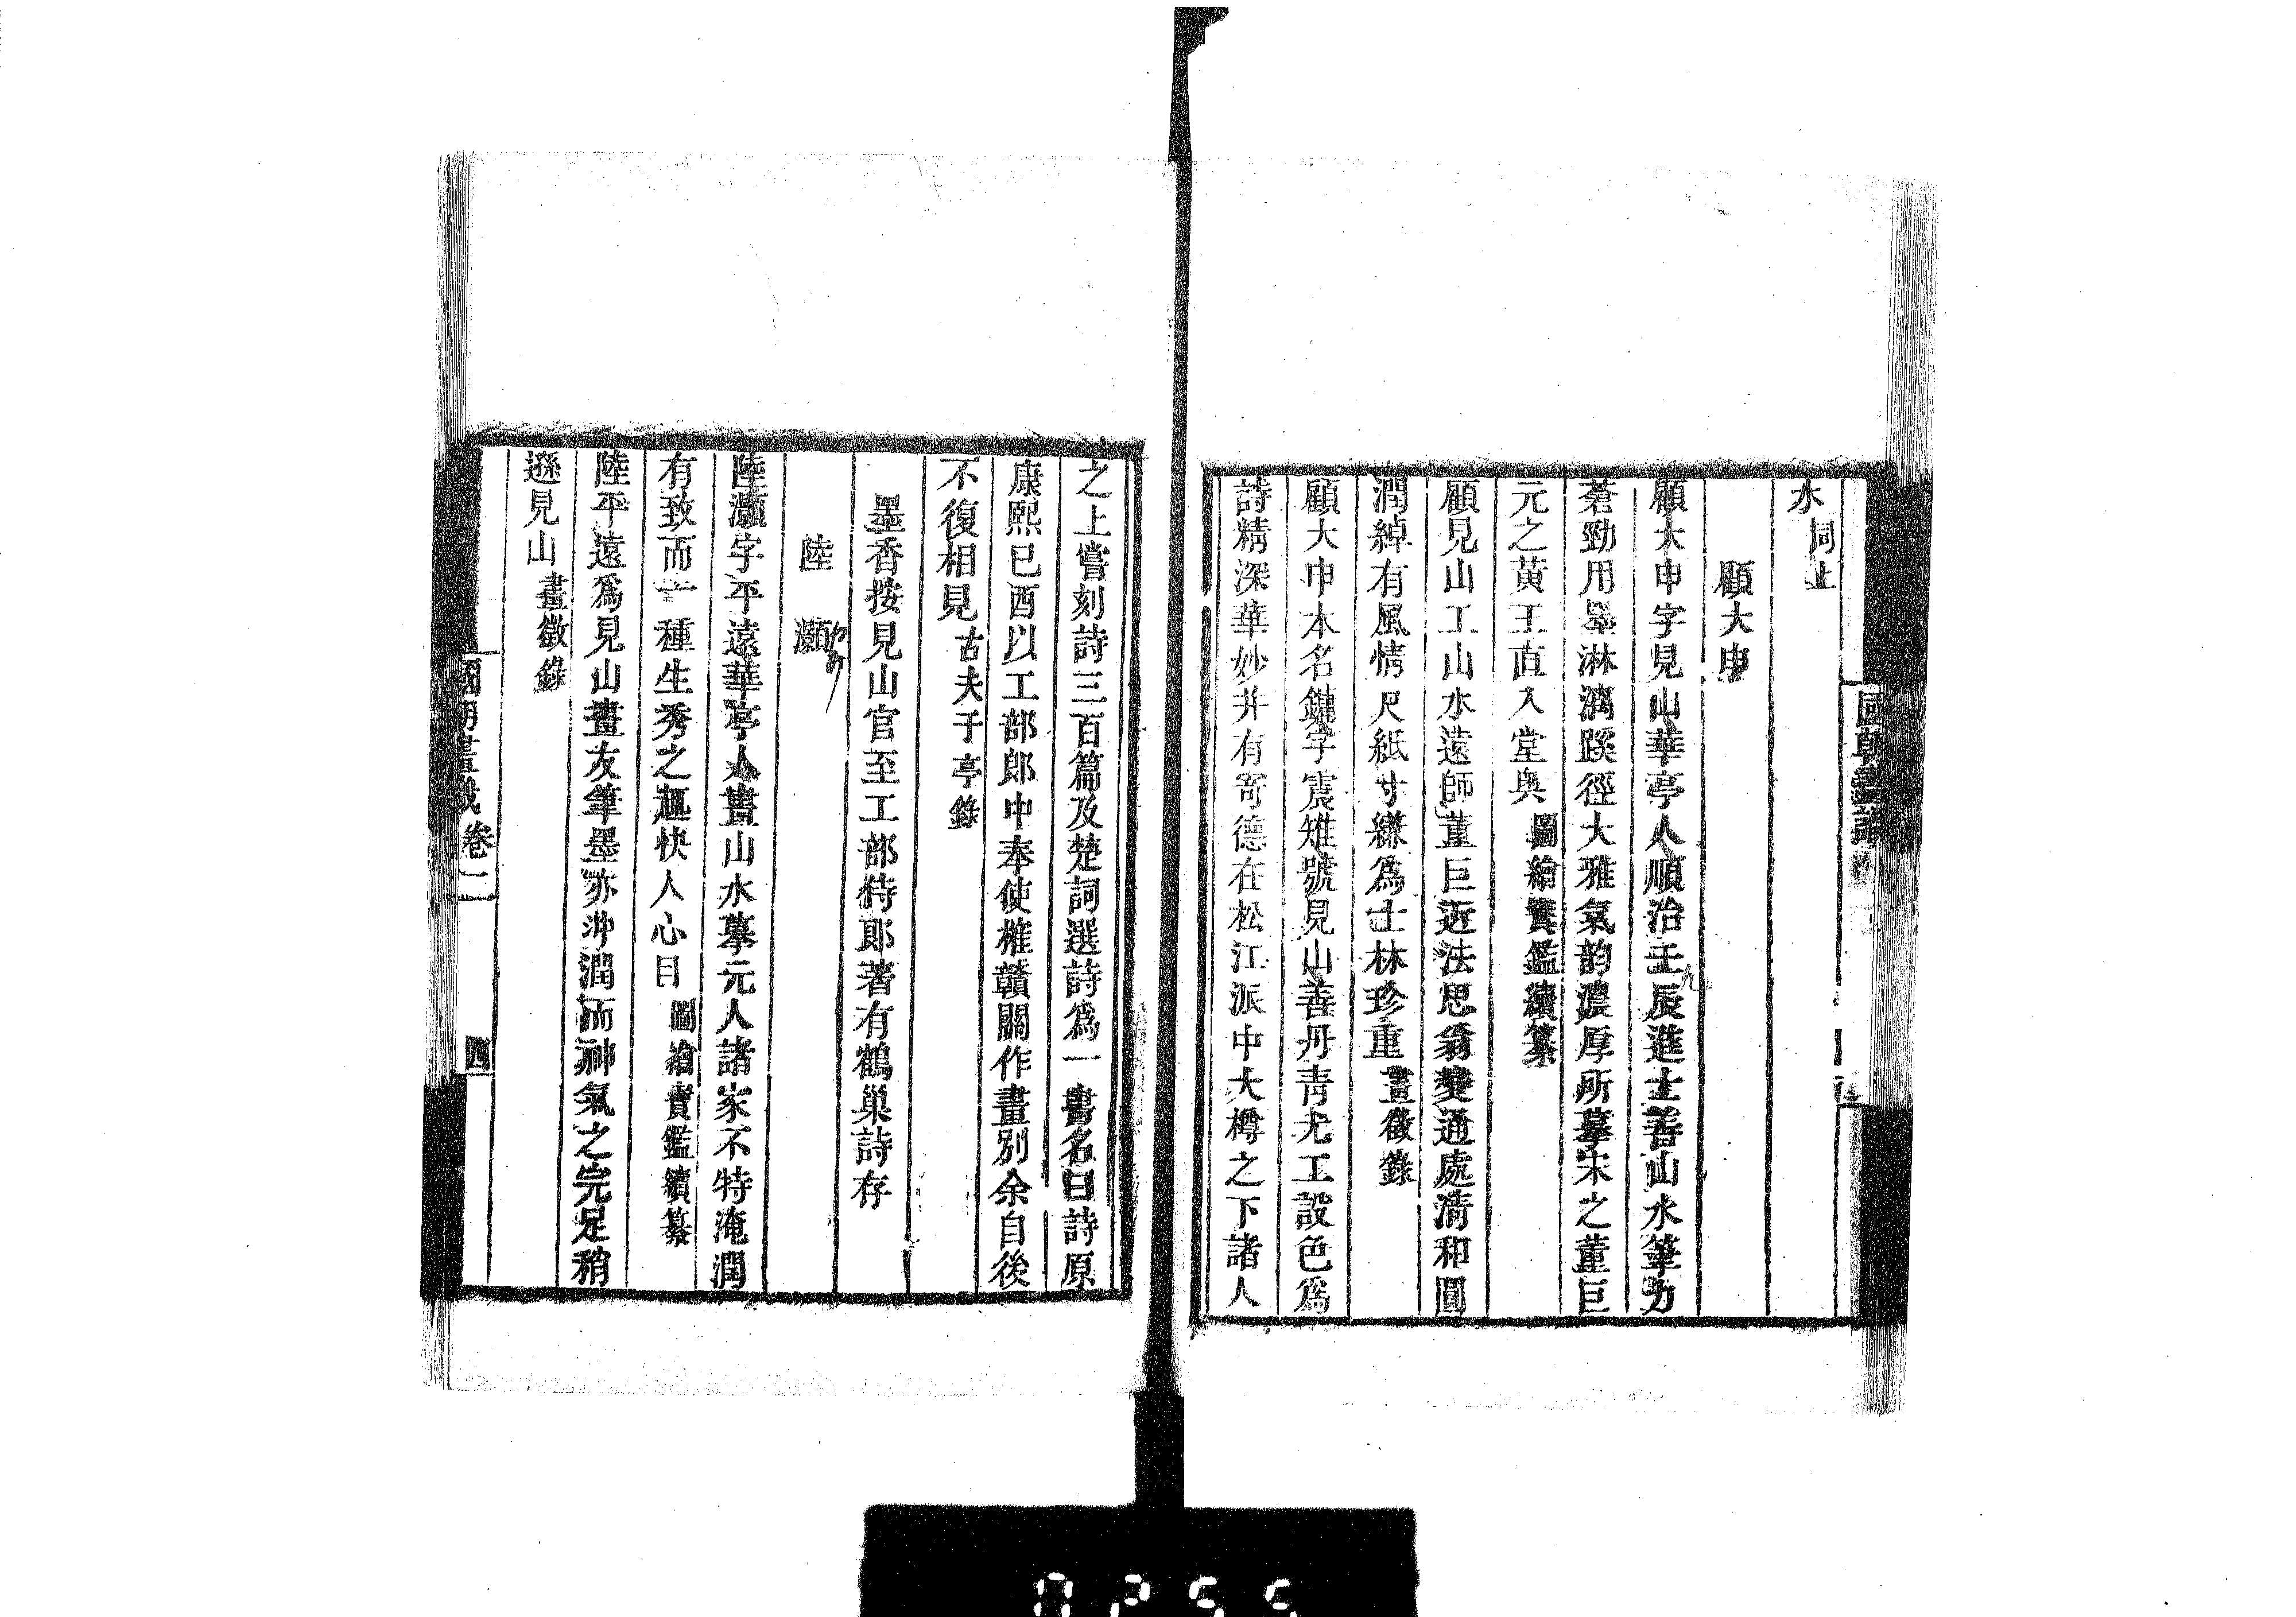 水同上
顧大申
顧大申字見山華亭人順治壬辰進士善山水筆力
蒼勁用墨淋漓蹊徑大雅氣韵濃厚所摹宋之董巨
元之黃王直入堂奥圖繪寶鑑續纂
顧見山工山水遠師董巨近法思翁變通處淸和圓
潤綽有風情尺紙寸縑爲士林珍重畫徵錄
顧大申本名鏞字震雉號見山善丹靑尤工設色爲
詩精深華妙并有寄德在松江派中大樽之下諸人
之上嘗刻詩三百篇及楚詞選詩爲一書名曰詩原
康熙已酉以工部郎中奉使榷贛關作畫別余自後
不復相見古夫于亭錄
墨香按見山官至工部侍郎著有鶴巢詩存
陸灝
陸灝字平遠華亭人畫山水摹元人諸家不特淹潤
有致而一種生秀之趣快人心目圖繪寶鑑續纂
陸平遠爲見山畫友筆墨亦沖潤而神氣之完足稍
遜見山畫徵錄
國朝畫識卷二
四